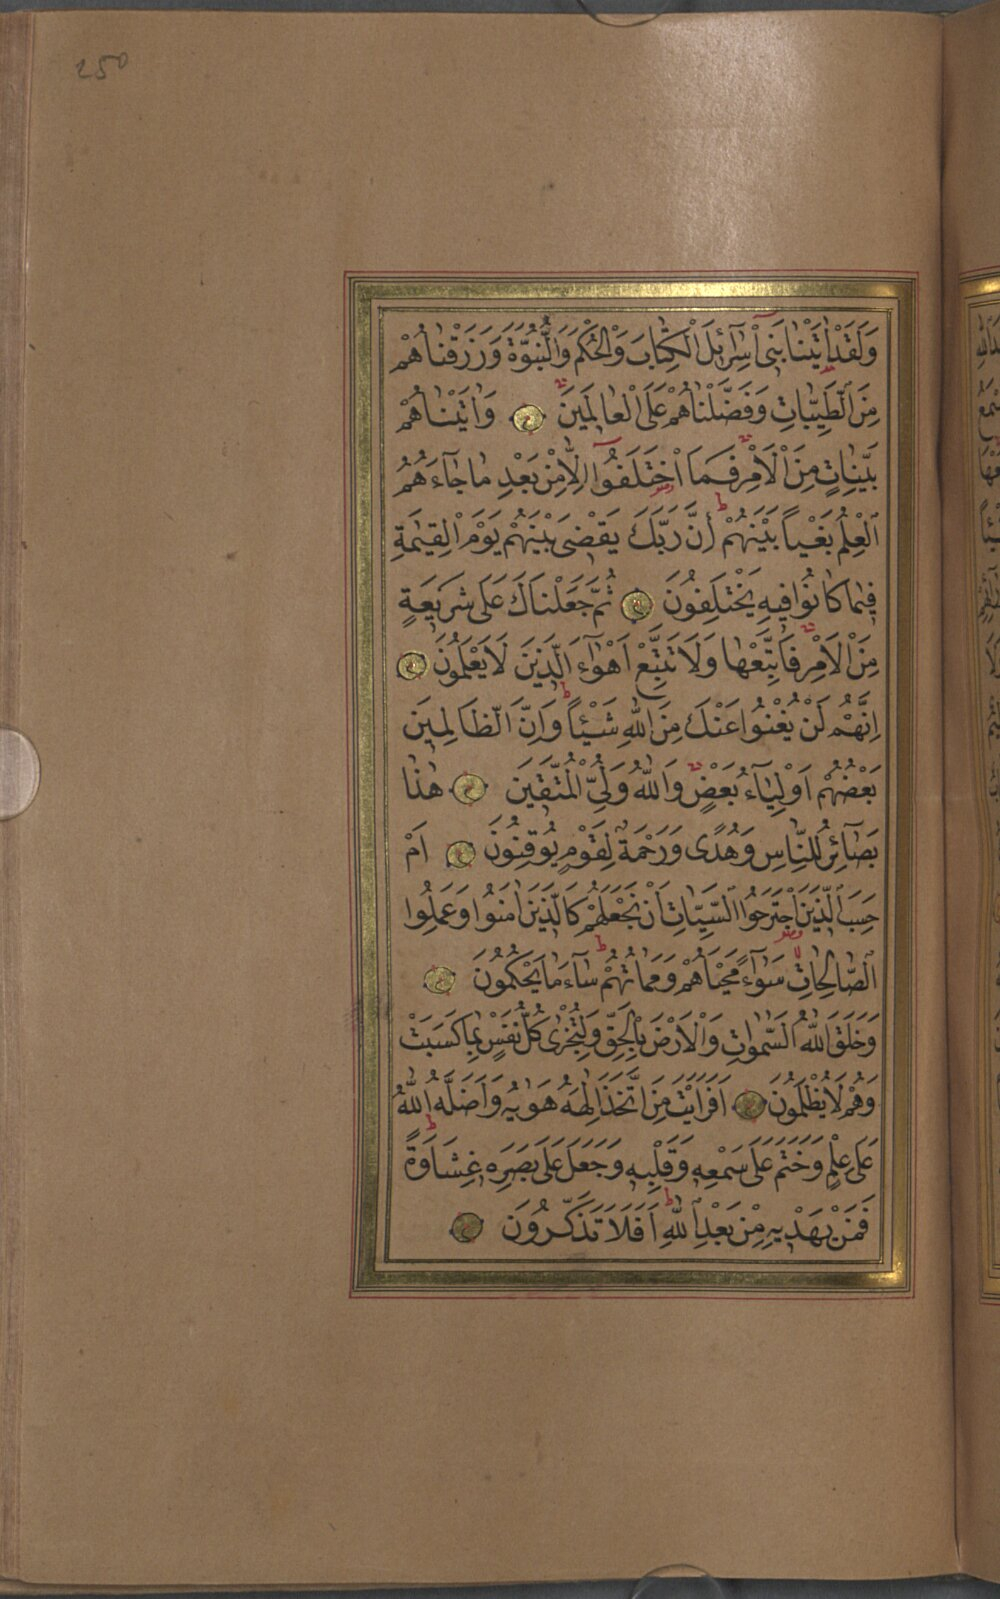 250
وَلَقَدْ اٰتَيْنَا بَنٖٓى اِسْرَٓائٖلَ الْكِتَابَ وَالْحُكْمَ وَالنُّبُوَّةَ وَرَزَقْنَاهُمْ
مِنَ الطَّيِّبَاتِ وَفَضَّلْنَاهُمْ عَلَى الْعَالَمٖينَ وَاٰتَيْنَاهُمْ
بَيِّنَاتٍ مِنَ الْاَمْرِ فَمَا اخْتَلَفُٓوا اِلَّا مِنْ بَعْدِ مَا جَٓاءَهُمُ
الْعِلْمُ بَغْياً بَيْنَهُمْ اِنَّ رَبَّكَ يَقْضٖى بَيْنَهُمْ يَوْمَ الْقِيٰمَةِ
فٖيمَا كَانُوا فٖيهِ يَخْتَلِفُونَ ثُمَّ جَعَلْنَاكَ عَلٰى شَرٖيعَةٍ
مِنَ الْاَمْرِ فَاتَّبِعْهَا وَلَا تَتَّبِعْ اَهْوَٓاءَ الَّذٖينَ لَا يَعْلَمُونَ
اِنَّهُمْ لَنْ يُغْنُوا عَنْكَ مِنَ اللّٰهِ شَيْـٔاً وَاِنَّ الظَّالِمٖينَ
بَعْضُهُمْ اَوْلِيَٓاءُ بَعْضٍ وَاللّٰهُ وَلِىُّ الْمُتَّقٖينَ هٰذَا
بَصَٓائِرُ لِلنَّاسِ وَهُدًى وَرَحْمَةٌ لِقَوْمٍ يُوقِنُونَ اَمْ
حَسِبَ الَّذٖينَ اجْتَرَحُوا السَّيِّاٰتِ اَنْ نَجْعَلَهُمْ كَالَّذٖينَ اٰمَنُوا وَعَمِلُوا
الصَّالِحَاتِ سَوَٓاءً مَحْيَاهُمْ وَمَمَاتُهُمْ سَٓاءَ مَا يَحْكُمُونَ
وَخَلَقَ اللّٰهُ السَّمٰوَاتِ وَالْاَرْضَ بِالْحَقِّ وَلِتُجْزٰى كُلُّ نَفْسٍ بِمَا كَسَبَتْ
وَهُمْ لَا يُظْلَمُونَ اَفَرَاَيْتَ مَنِ اتَّخَذَ اِلٰهَهُ هَوٰيهُ وَاَضَلَّهُ اللّٰهُ
عَلٰى عِلْمٍ وَخَتَمَ عَلٰى سَمْعِهٖ وَقَلْبِهٖ وَجَعَلَ عَلٰى بَصَرِهٖ غِشَاوَةً
فَمَنْ يَهْدٖيهِ مِنْ بَعْدِ اللّٰهِ اَفَلَا تَذَكَّرُونَ